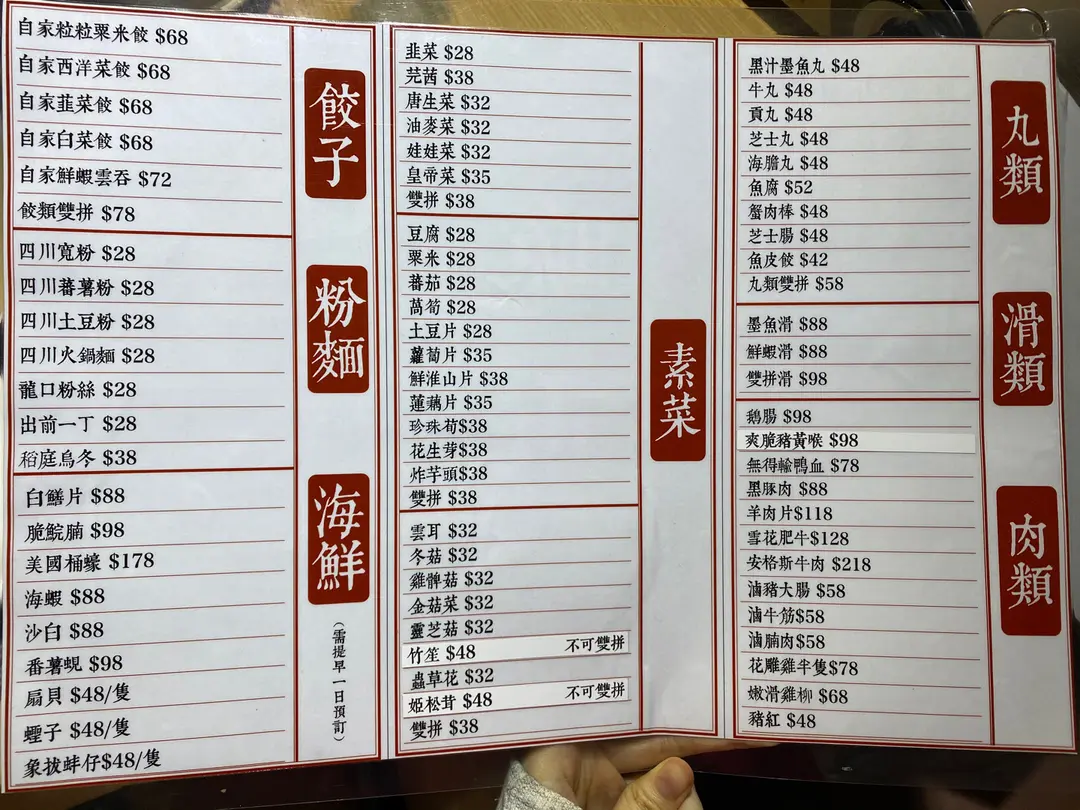 自家粒粒粟米餃 $68
自家西洋菜餃 $68
自家韮菜餃 $68
自家白菜餃 $68
自家鮮蝦雲吞 $72
餃類雙拼 $78
餃子
四川寬粉 $28
四川蕃薯粉 $28
四川土豆粉 $28
四川火鍋麵 $28
龍口粉絲 $28
出前一丁 $28
稻庭烏冬 $38
粉麵
白鱔片 $88
脆鯇腩 $98
美國桶蠔 $178
海蝦 $88
沙白 $88
番薯蜆 $98
扇貝 $48/隻
蟶子 $48/隻
象拔蚌仔$48/隻
海鮮
(需提早一日預訂)
韭菜 $28
芫茜 $38
唐生菜 $32
油麥菜 $32
娃娃菜 $32
皇帝菜 $35
雙拼 $38
豆腐 $28
粟米 $28
蕃茄 $28
萵筍 $28
土豆片 $28
蘿蔔片 $35
鮮淮山片 $38
蓮藕片 $35
珍珠荀$38
花生芽$38
炸芋頭$38
雙拼 $38
雲耳 $32
冬菇 $32
雞髀菇 $32
金菇菜 $32
靈芝菇 $32
竹笙 $48 不可雙拼
蟲草花 $32
姬松茸 $48 不可雙拼
雙拼 $38
素菜
黑汁墨魚丸 $48
牛丸 $48
貢丸 $48
芝士丸 $48
海膽丸 $48
魚腐 $52
蟹肉棒 $48
芝士腸 $48
魚皮餃 $42
丸類雙拼 $58
丸類
墨魚滑 $88
鮮蝦滑 $88
雙拼滑 $98
滑類
鵝腸 $98
爽脆豬黃喉 $98
無得輸鴨血 $78
黑豚肉 $88
羊肉片$118
雪花肥牛$128
安格斯牛肉 $218
滷豬大腸 $58
滷牛筋$58
滷腩肉$58
花雕雞半隻$78
嫩滑雞柳 $68
豬紅 $48
肉類